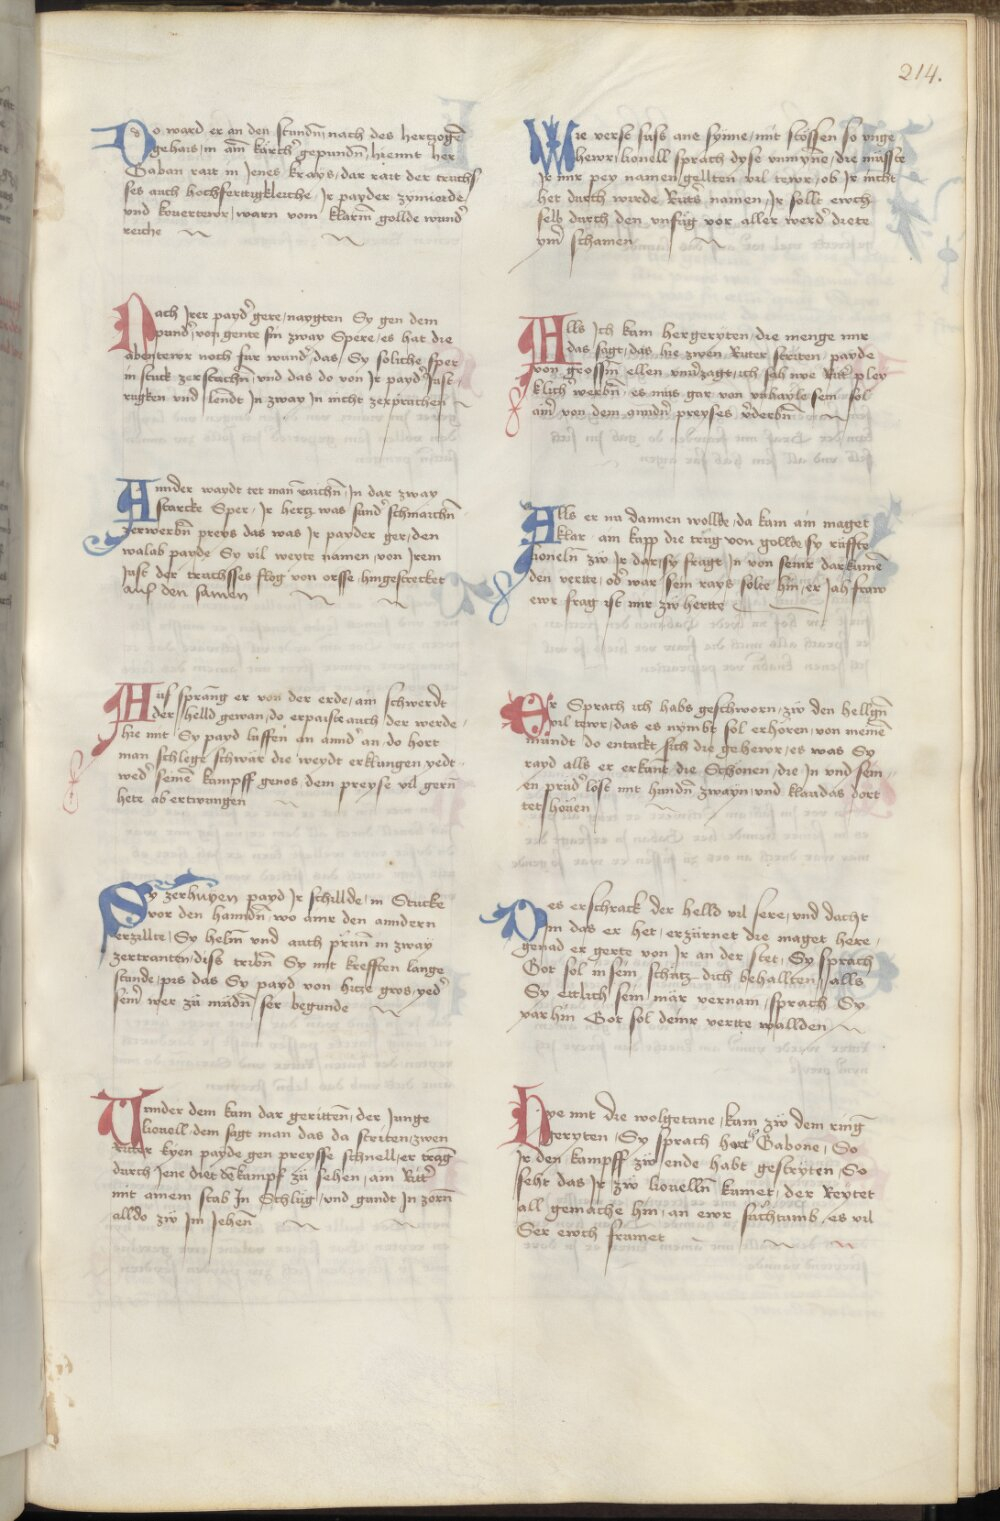 214.
Do ward er an den stundn nach des hertzogn
gehais in ain karchr gepundn, hiemit her
Gaban rait in Jenes krays, dar rait der truchs
ses auch hochferttigkleiche, Jr payder zymierde
vnd kouertewr, warn vom klarm gollde wundr
reiche
Nach Jrer paydr gere, naygten Sy gen dem
pundr, von gente sin zway Spere, es hat die
abentewr noch fur wundr, das Sy soliche sper
in stuck zerstachn, vnd das do von Jr paydr Just
rugken vnd lendt Jn zway Jn nicht zerprachen
Annder waydt tet man raichn, Jn dar zway
starcke Sper, Jr hertz was sundr schmaichn
zerwerbn preys das was Jr payder ger, den
walab payde Sy vil weyte namen, von Jrem
Just der truchsses flog von orsse hingestrecket
auf den samen
Auf sprang er von der erde, ain schwerdt
der helld gewan, do erpaiste auch der werde,
hie mit Sy payd luffen an anndr an, do hort
man schlege schwär die weydt erklungen, yedt
wedr seinem kampff genos, dem preyse vil gern
hete ab ertwungen
Sy zerhuwen payd Jr schillde, in Stucke
vor den hanndn, wo ainr den anndern
erzillte, Sy helm vnd auch prunn in zway
zertranten, diss tribn Sy mit krefften lange
stunde, pis das Sy payd von hitze gros, yedr
seinr wer zu mudn ser begunde
Vnnder dem kam dar geritten, der Junge
lionell, dem sagt man das da striten, zwen
Ritter kyen payde gen preysse schnell, er trang
durch Jene diet den kampf zu sehen, ain Rittr
mit ainem stab Jn Schlug, vnd gundt Jn zorn
alldo zw Jm Jehen
Wie verst suss ane synne, mit stössen so vnge
hewr, lionell sprach dyse vnmynne, die müsste
Jr mir pey namen gellten vil tewr, ob Jr nicht
het durch wirde Ritrs namen, Jr sollt ewch
selb durch den vnfüg vor aller werdr diete
ymr schamen
Alls Jch kam hergeryten, die menge mir
das sagt, das hie zwen Ritter striten, payde
von grossm ellen vnuerzagt, ich sah nye Ritr pley
klichr werbn, es mus gar von vnhayle sein, sol
ainr von dem anndn preyses vrderbn
Alls er nu dannen wollde, da kam ain maget
klar, ain kapp die trug von gollde, sy rüffte
lioneln zw Jr dar, sy fragt Jn von seinr dar kume
den vertte, odr war sein rays solte hin, er Jah fraw
ewr frag ist mir zw hertte
Er Sprach ich habs geschworn, zw den hellgn
vil tewr, das es nymbt sol erhören, von meinem
mundt do entackt sich die gehewr, es was Sy
rayd alls er erkant die Schonen, die Jn vnd sein
en prudr lost mit hundn zwayn, vnd klaudas dort
tet höuen
Des erschrack der helld vil sere, vnd dacht
im das er het, erzürnet die maget here,
genad er gerte von Jr an der stet, Sy sprach
Got sol in sein schutz dich behallten, alls
Sy ettlich sein mär vernam, sprach Sy
var hin Got sol deinr vertte wallden
Hye mit die wolgetane, kam zw dem ring
geryten, Sy sprach hort Gabone, So
Jr den kampff zw ende habt gestryten, So
seht das Jr zw lionelln kumet, der Reytet
all gemache hin, an ewr suchtumb, es vil
Ser ewch frumet